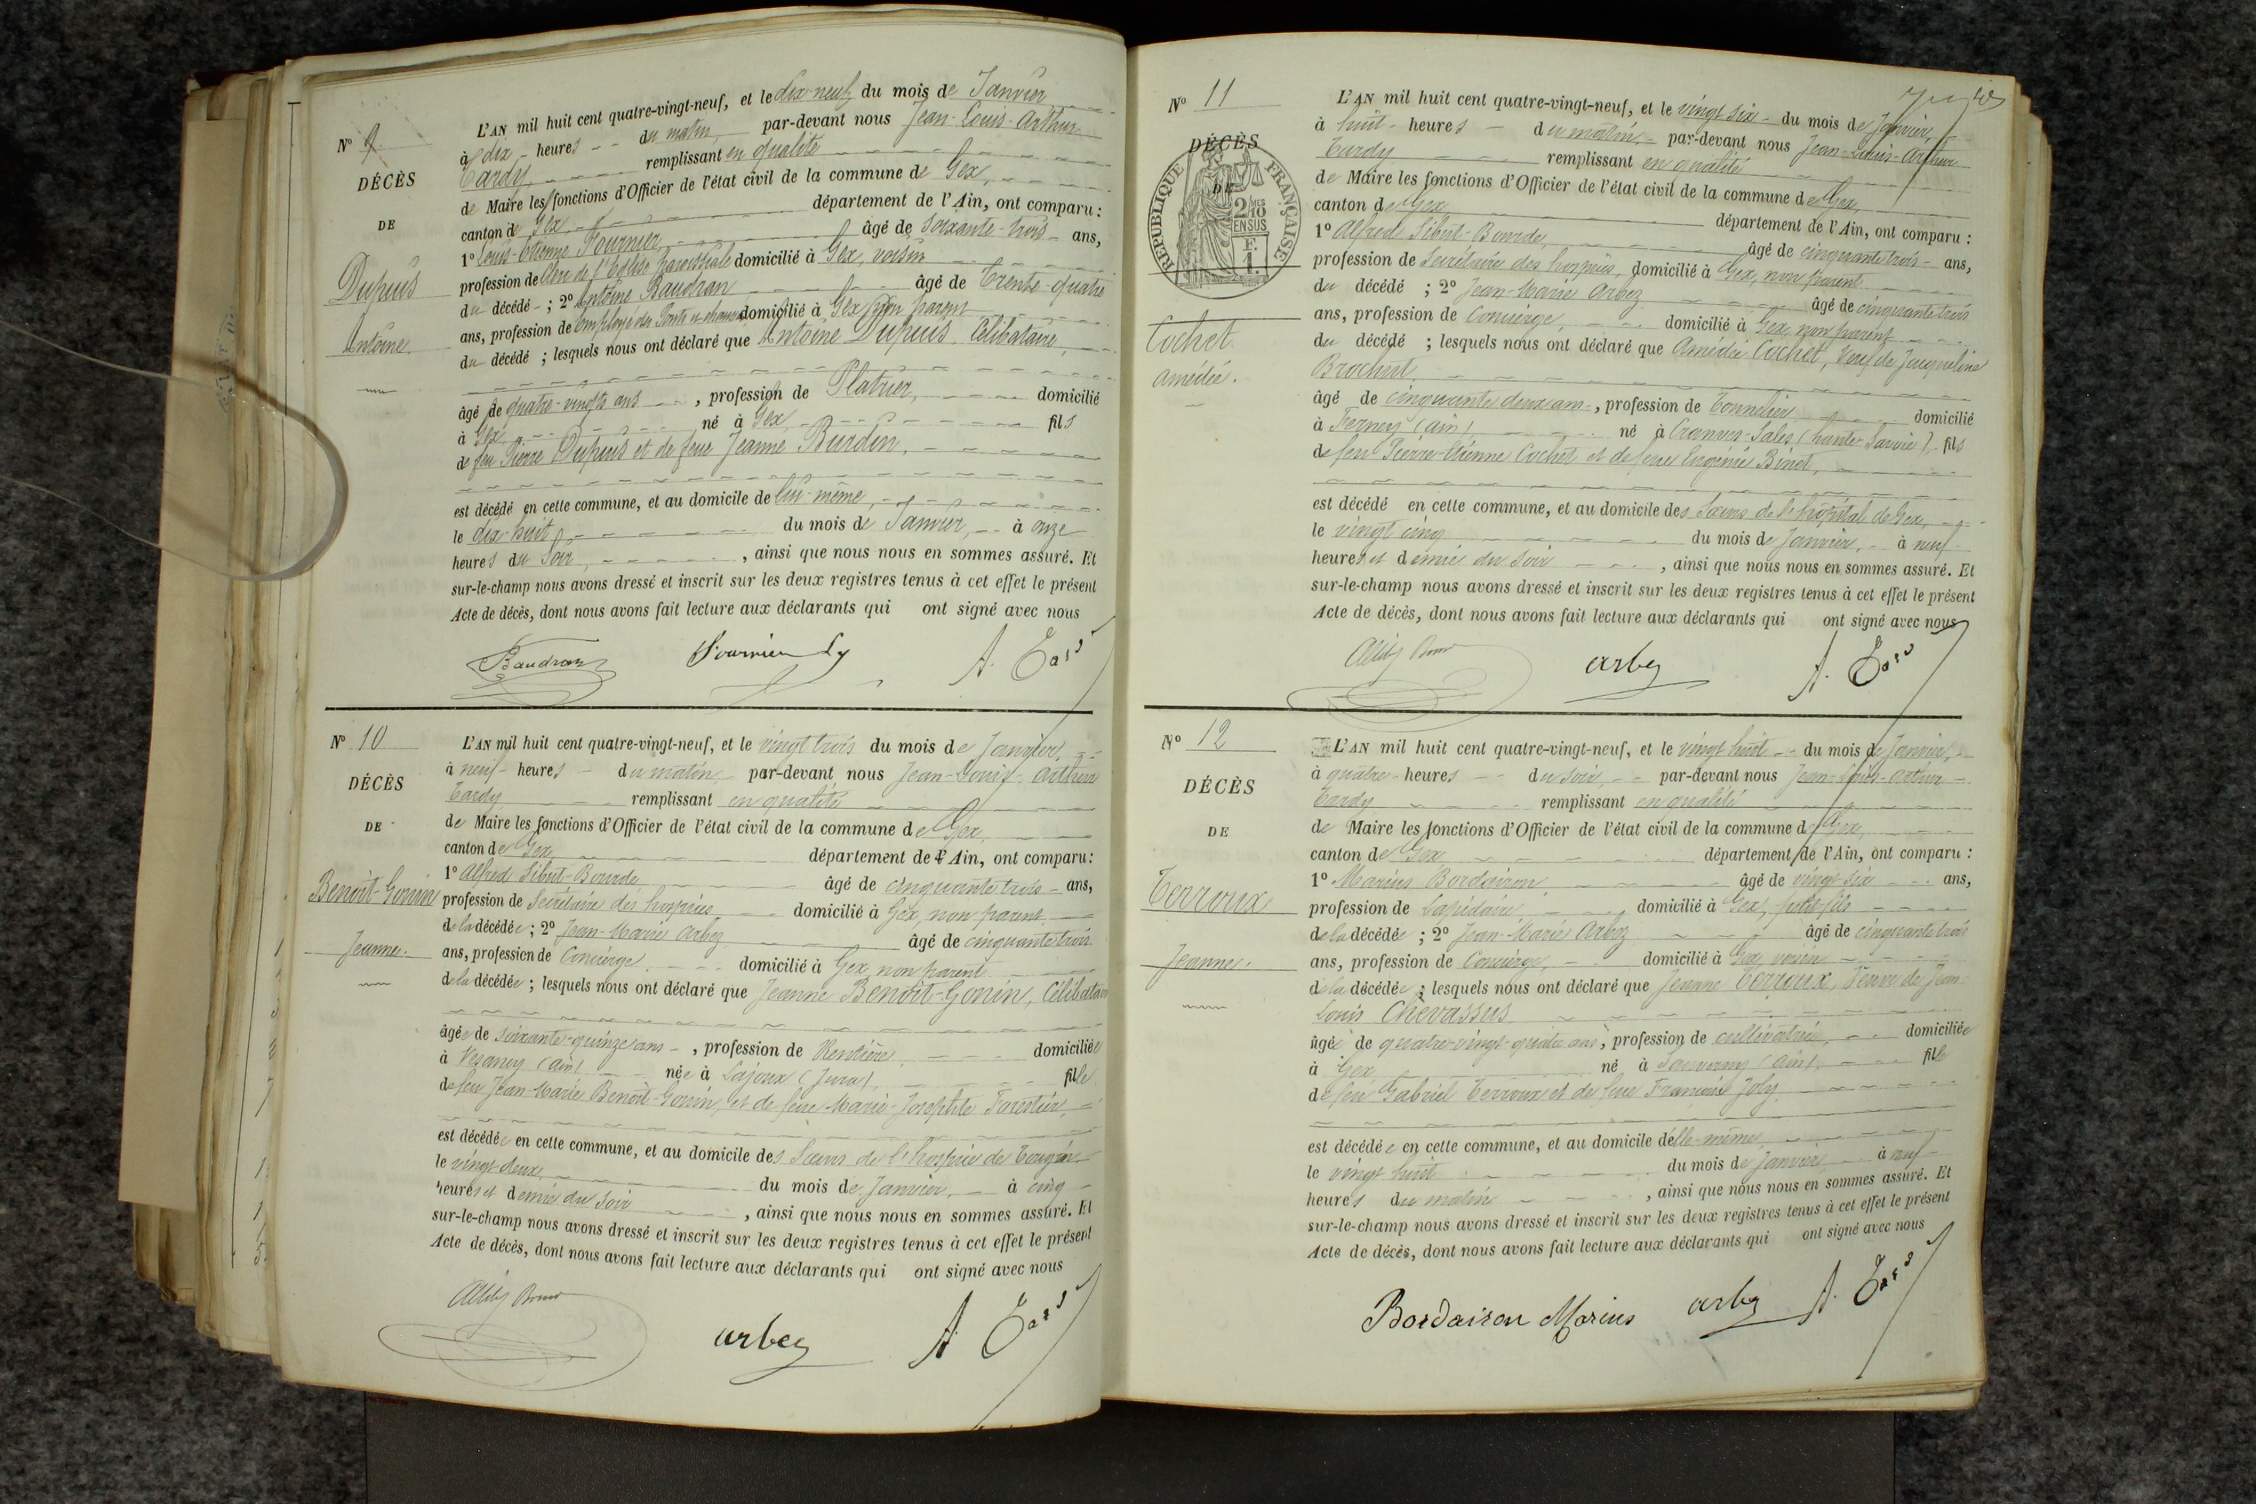 N° 9
DÉCÈS
DE
Dupuis
Antoine.
L'AN mil huit cent quatre-vingt-neuf, et le dix-neuf du mois de Janvier
à dix heures du matin par-devant nous Jean-Louis-Arthur
Tardy, remplissant en qualité
de Maire les fonctions d'Officier de l'état civil de la commune de Gex,
canton de Gex, département de l'Ain, ont comparu :
1° Louis-Etienne Fournier, âgé de soixante-trois ans,
profession de Clerc de l'Eglise paroissiale domicilié à Gex, voisin
du décédé ; 2° Antoine Baudran âgé de trente-quatre
ans, profession de employé des Ponts et chaussées domicilié à Gex, non parent
du décédé ; lesquels nous ont déclaré que Antoine Dupuis, Célibataire,
âgé de quatre-vingts ans, profession de Platrier, domicilié
à Gex, né à Gex, fils
de feu Pierre Dupuis et de feue Jeanne Burdin,
est décédé en cette commune, et au domicile de lui-même,
le dix-huit du mois de Janvier, à onze
heures du soir, ainsi que nous nous en sommes assuré. Et
sur-le-champ nous avons dressé et inscrit sur les deux registres tenus à cet effet le présent
Acte de décès, dont nous avons fait lecture aux déclarants qui ont signé avec nous
Baudran Fournier Ls A. Tardy
N° 10
DÉCÈS
DE
Benoit-Gonin
Jeanne.
L'AN mil huit cent quatre-vingt-neuf, et le vingt trois du mois de Janvier,
à neuf heures du matin par-devant nous Jean-Louis-Arthur
Tardy remplissant en qualité
de Maire les fonctions d'Officier de l'état civil de la commune de Gex,
canton de Gex département de l'Ain, ont comparu :
1° Alfred Sibut-Bourde, âgé de cinquante trois ans,
profession de Secrétaire des hospices domicilié à Gex, non parent
de la décédée ; 2° Jean-Marie Arbez âgé de cinquante trois
ans, profession de Concierge, domicilié à Gex, non parent
de la décédée ; lesquels nous ont déclaré que Jeanne Benoit-Gonin, Célibataire
âgée de soixante-quinze ans, profession de Rentière, domiciliée
à Vesancy (Ain) née à Lajoux (Jura), fille
de feu Jean-Marie Benoit-Gonin, et de feue Marie-Josephte Forestier,
est décédée en cette commune, et au domicile des Sœurs de l'hospice de Tougin
le vingt-deux, du mois de Janvier, à cinq
heures et demie du soir, ainsi que nous nous en sommes assuré. Et
sur-le-champ nous avons dressé et inscrit sur les deux registres tenus à cet effet le présent
Acte de décès, dont nous avons fait lecture aux déclarants qui ont signé avec nous
arbez A. Tardy
N° 11
DÉCÈS
DE
RÉPUBLIQUE FRANÇAISE
2/10 MES
EN SUS
F.
1.
Cochet
Amédée.
L'AN mil huit cent quatre-vingt-neuf, et le vingt six du mois de Janvier,
à huit heures du matin, par-devant nous Jean-Louis-Arthur
Tardy remplissant en qualité
de Maire les fonctions d'Officier de l'état civil de la commune de Gex,
canton de Gex département de l'Ain, ont comparu :
1° Alfred Sibut-Bourde, âgé de cinquante trois ans,
profession de Secrétaire des hospices, domicilié à Gex, non parent
du décédé ; 2° Jean-Marie Arbez âgé de cinquante trois
ans, profession de Concierge, domicilié à Gex, non parent
du décédé ; lesquels nous ont déclaré que Amédée Cochet, veuf de Jacqueline
Brochut,
âgé de cinquante deux ans, profession de Tonnelier domicilié
à Ferney (Ain) né à Cranves-Sales (haute-Savoie), fils
de feu Pierre-Etienne Cochet et de feue Eugénie Binet,
est décédé en cette commune, et au domicile des Sœurs de l'hôpital de Gex,
le vingt cinq du mois de Janvier, à neuf
heures et demie du soir, ainsi que nous nous en sommes assuré. Et
sur-le-champ nous avons dressé et inscrit sur les deux registres tenus à cet effet le présent
Acte de décès, dont nous avons fait lecture aux déclarants qui ont signé avec nous
arbez A. Tardy
N° 12
DÉCÈS
DE
Terroux
Jeanne.
L'AN mil huit cent quatre-vingt-neuf, et le vingt huit du mois de Janvier,
à quatre heures du soir, par-devant nous Jean-Louis-Arthur
Tardy remplissant en qualité
de Maire les fonctions d'Officier de l'état civil de la commune de Gex,
canton de Gex département de l'Ain, ont comparu :
1° Marius Bordairon, âgé de vingt-six ans,
profession de Lapidaire domicilié à Gex, petit-fils
de la décédée ; 2° Jean-Marie Arbez âgé de cinquante trois
ans, profession de Concierge, domicilié à Gex, voisin
de la décédée ; lesquels nous ont déclaré que Jeanne Terroux, veuve de Jean-
Louis Chevassus
âgée de quatre-vingt-quatre ans, profession de cultivatrice, domiciliée
à Gex né à Sauverny (Ain), fille
de feu Gabriel Terroux et de feue Françoise Joly,
est décédée en cette commune, et au domicile d'elle-même
le vingt huit du mois de Janvier à neuf
heures du matin, ainsi que nous nous en sommes assuré. Et
sur-le-champ nous avons dressé et inscrit sur les deux registres tenus à cet effet le présent
Acte de décès, dont nous avons fait lecture aux déclarants qui ont signé avec nous
Bordairon Marius arbez A. Tardy